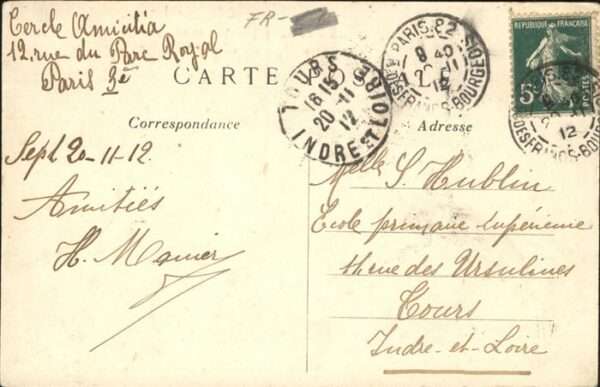 Cercle Amicitia
12, rue du Parc Royal
Paris 3e
FR-
CARTE POSTALE
Correspondance
Sept 20-11-12.
Amitiés
H. Manier
TOURS
16 15
20-11
12
INDRE ET LOIRE
PARIS 82
8 40
11
12
R. DES FRANCS-BOURGEOIS
REPUBLIQUE FRANÇAISE
5c
POSTES
PARIS 82
12
R. DES FRANCS-BOURGEOIS
Adresse
Melle S. Hublin
Ecole primaire supérieure
rue des Ursulines
Tours
Indre-et-Loire